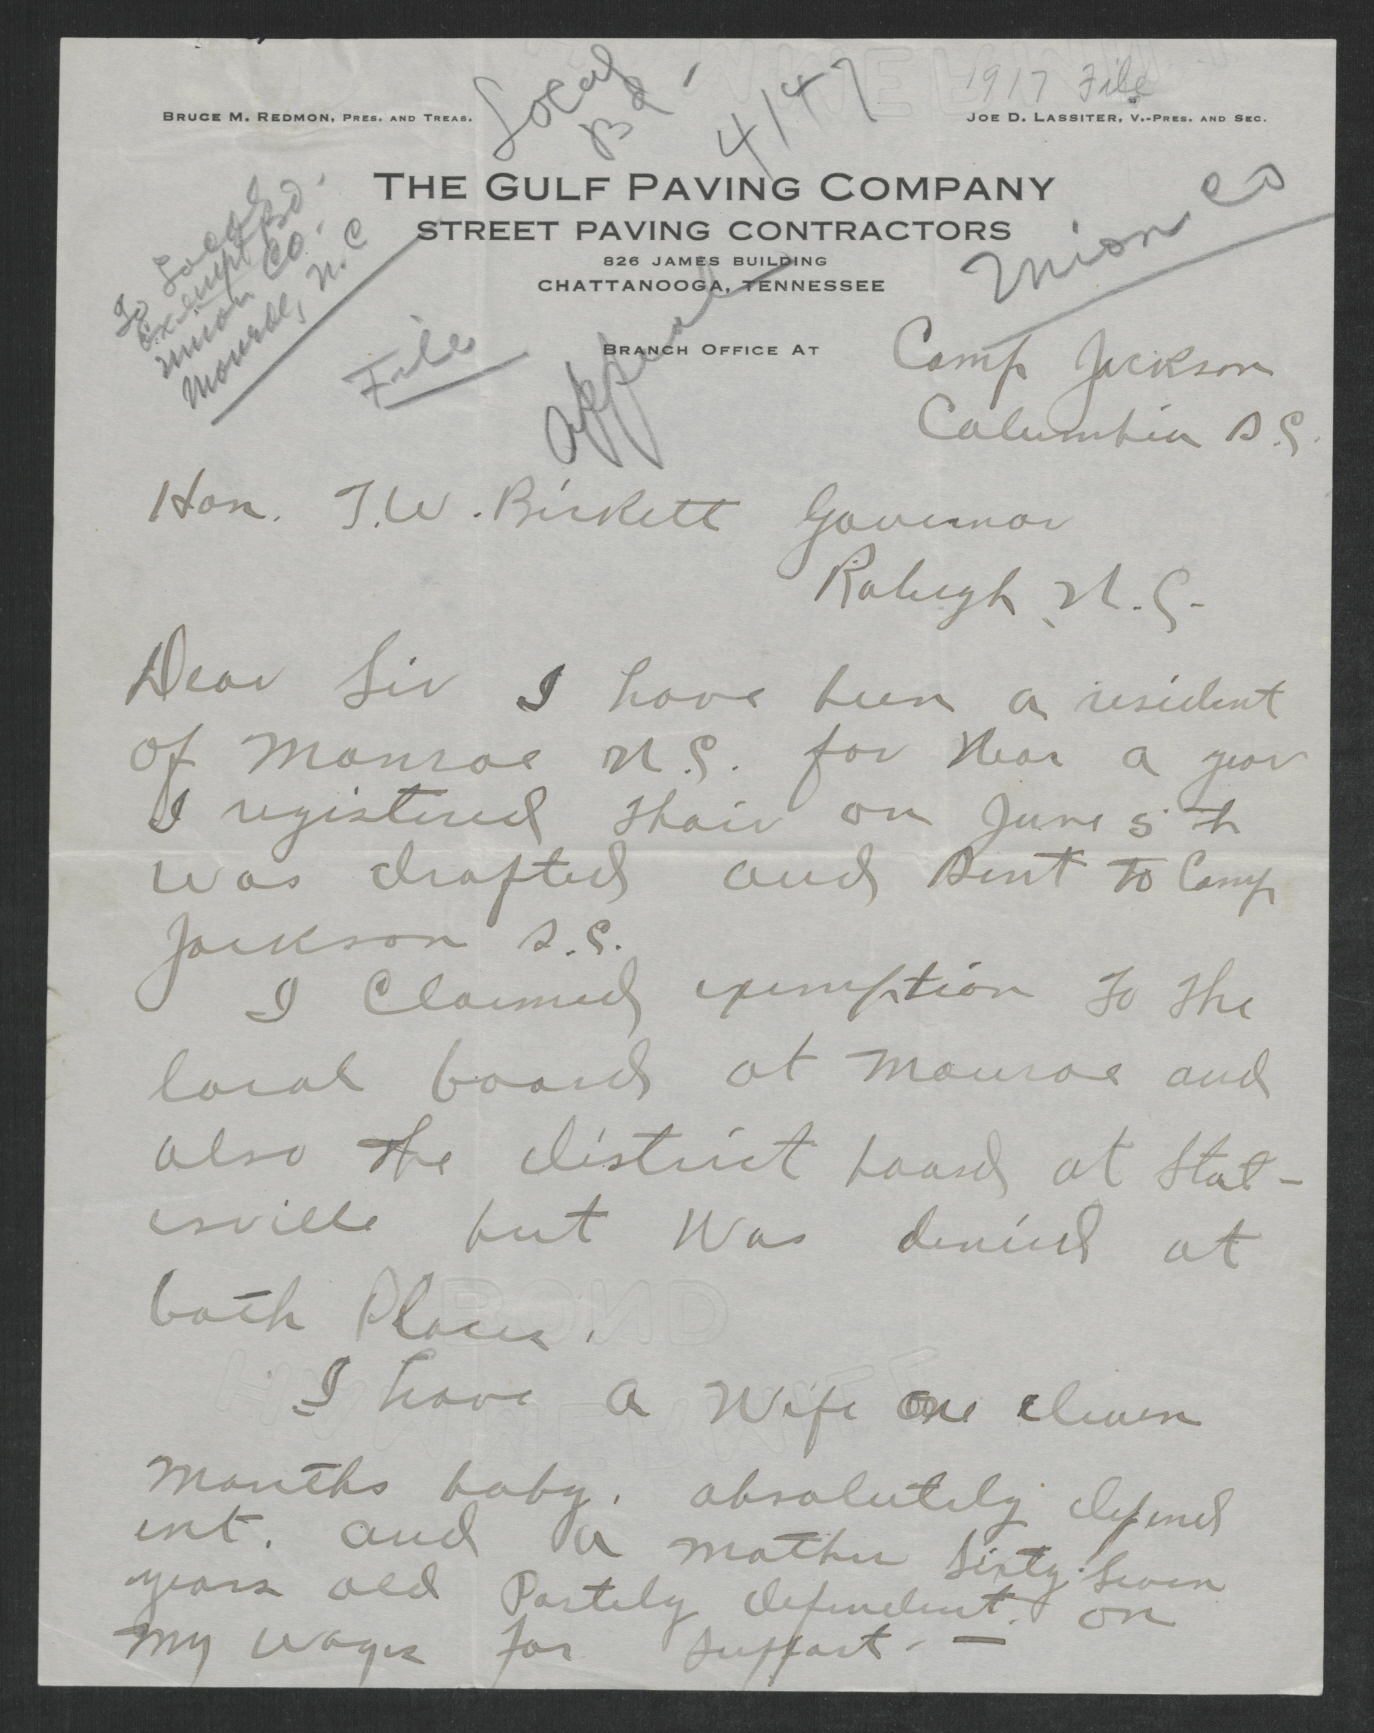 1917 File
Local
Bd.
4147
BRUCE M. REDMON, PRES. AND TREAS.
JOE D. LASSITER, V.-PRES. AND SEC.
THE GULF PAVING COMPANY
STREET PAVING CONTRACTORS
826 JAMES BUILDING
CHATTANOOGA, TENNESSEE
BRANCH OFFICE AT
To Local
Exempt Bd.
Union Co.
Monroe, N.C
File
appeal
Union Co
Camp Jackson
Columbia S.C.
Hon. T.W. Bickett Governor
Raleigh N.C.
Dear Sir I have been a resident
of Monroe N.C. for Near a year
I registered thair on June 5th
was drafted and Sent to Camp
Jackson S.C.
I Claimed exemption to the
local board at Monroe and
also the district board at Stat-
esville but Was denied at
both Places.
I have a Wife one eleven
months baby. absolutely depend
ent. and a mother Sixty Seven
years old Partely dependent. on
my wages for support. —
BOND